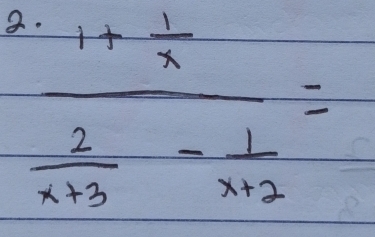 2. 1 + 1/x
=
2/(x+3) - 1/(x+2)